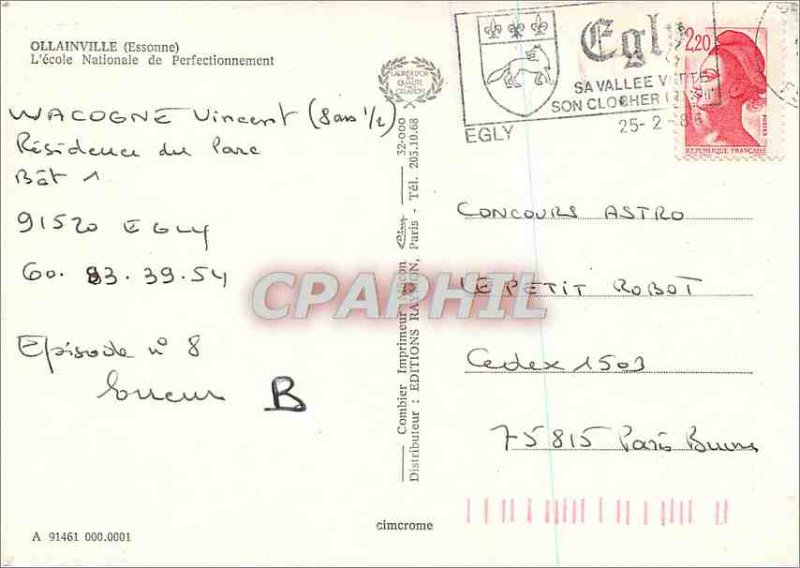 OLLAINVILLE (Essonne)
L'école Nationale de Perfectionnement
LAURIER D'OR
QUALITÉ
CRÉATION
Egly
SA VALLEE VERTE
SON CLOCHER
25-2-86
EGLY
2,20
POSTES
REPUBLIQUE FRANÇAISE
WACOGNE Vincent (8 ans 1/2)
Résidence du Parc
Bât 1
91520 EGLY
60.83.39.54
Episode n° 8
Erreur B
Combier Imprimeur Mâcon Cim 32-000
Distributeur : EDITIONS RAYMON, Paris - Tél. 203.10.68
CONCOURS ASTRO
LE PETIT ROBOT
Cedex 1503
75815 Paris Brune
CPARAPHIL
A 91461 000.0001
cimcrome